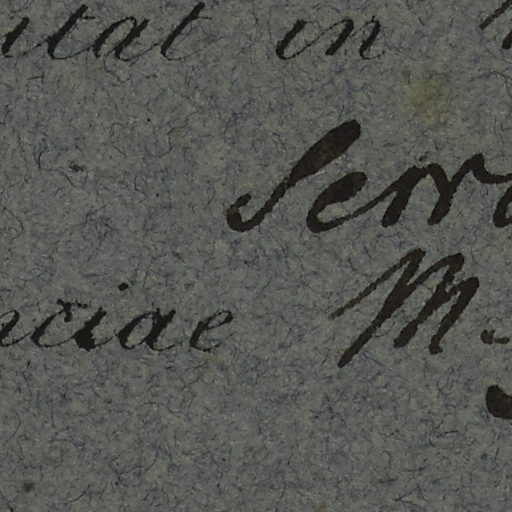 itat in
Serr
nciae M